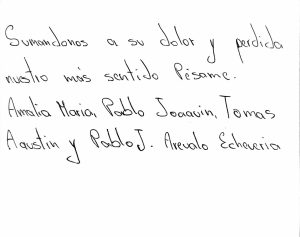 Sumandonos a su dolor y perdida
nustro más sentido Pésame.
Amalia Maria, Pablo Joaquin, Tomas
Agustin y Pablo J. Arevalo Echeveria